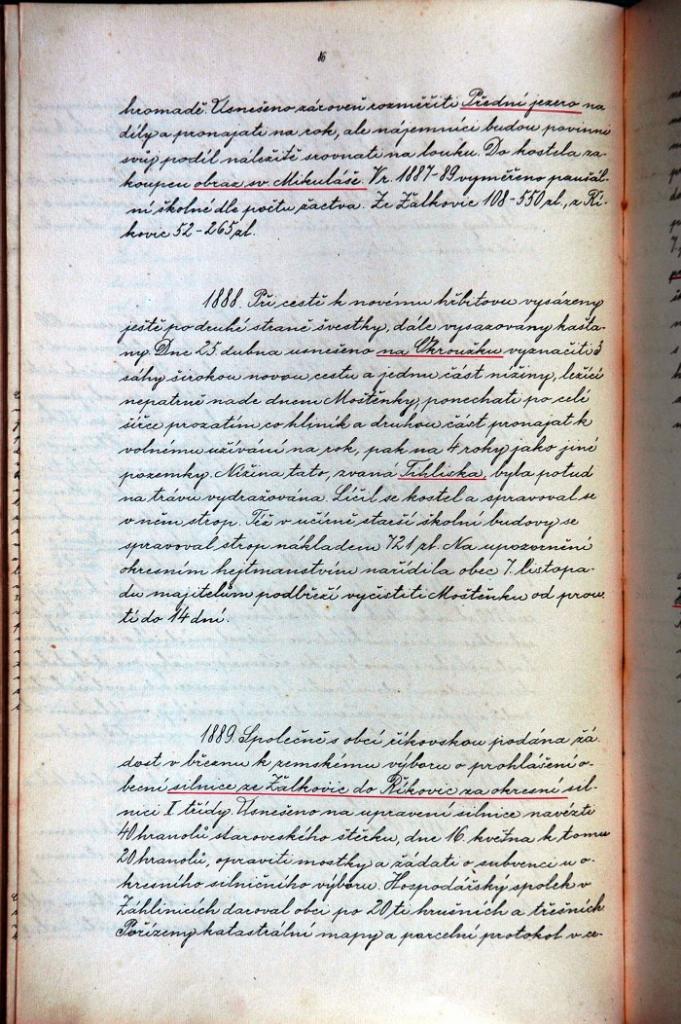 16
hromadě. Usnešeno zároveň rozměřiti Přední jezero na
díly a pronajati na rok, ale nájemníci budou povinni
svůj podíl náležitě srovnati na louku. Do kostela za-
koupen obraz sv. Mikuláše. Vr. 1887-89 vyměřeno paušál-
ní školné dle počtu žactva. Ze Žalkovic 108-550 zl., z Ři-
kovic 52-265 zl.
1888. Při cestě k novému hřbitovu vysázeny
ještě po druhé straně švestky, dále vysazovany kašta-
ny. Dne 25. dubna usnešeno na Okroužku vyznačiti 3
sáhy širokou novou cestu a jednu část nížiny, ležící
nepatrně nade dnem Moštěnky, ponechati po celé
šířce prozatím co hliník a druhou část pronajat k
volnému užívání na rok, pak na 4 roky jako jiné
pozemky. Nížina tato, zvaná Trhliska, byla potud
na trávu vydražována. Líčil se kostel a spravoval se
v něm strop. Též v učírně starší školní budovy se
spravoval strop nákladem 721 zl. Na upozornění
okresním hejtmanstvím nařídila obec 7. listopa-
du majitelům podbřeží vyčistiti Moštěnku od prou-
tí do 14 dní.
1889. Společně s obcí říkovskou podána žá-
dost v březnu k zemskému výboru o prohlášení o-
becní silnice ze Žalkovic do Říkovic za okresní sil-
nici I třídy. Usnešeno na upravení silnice navézti
40 hranolů staroveského štěrku, dne 16. května k tomu
20 hranolů, opraviti mostky a žádati o subvenci u o-
kresního silničního výboru. Hospodářský spolek v
Záhlinicích daroval obci po 20 ti hrušních a třešních
Pořízeny katastrální mapy a parcelní protokol v ce-